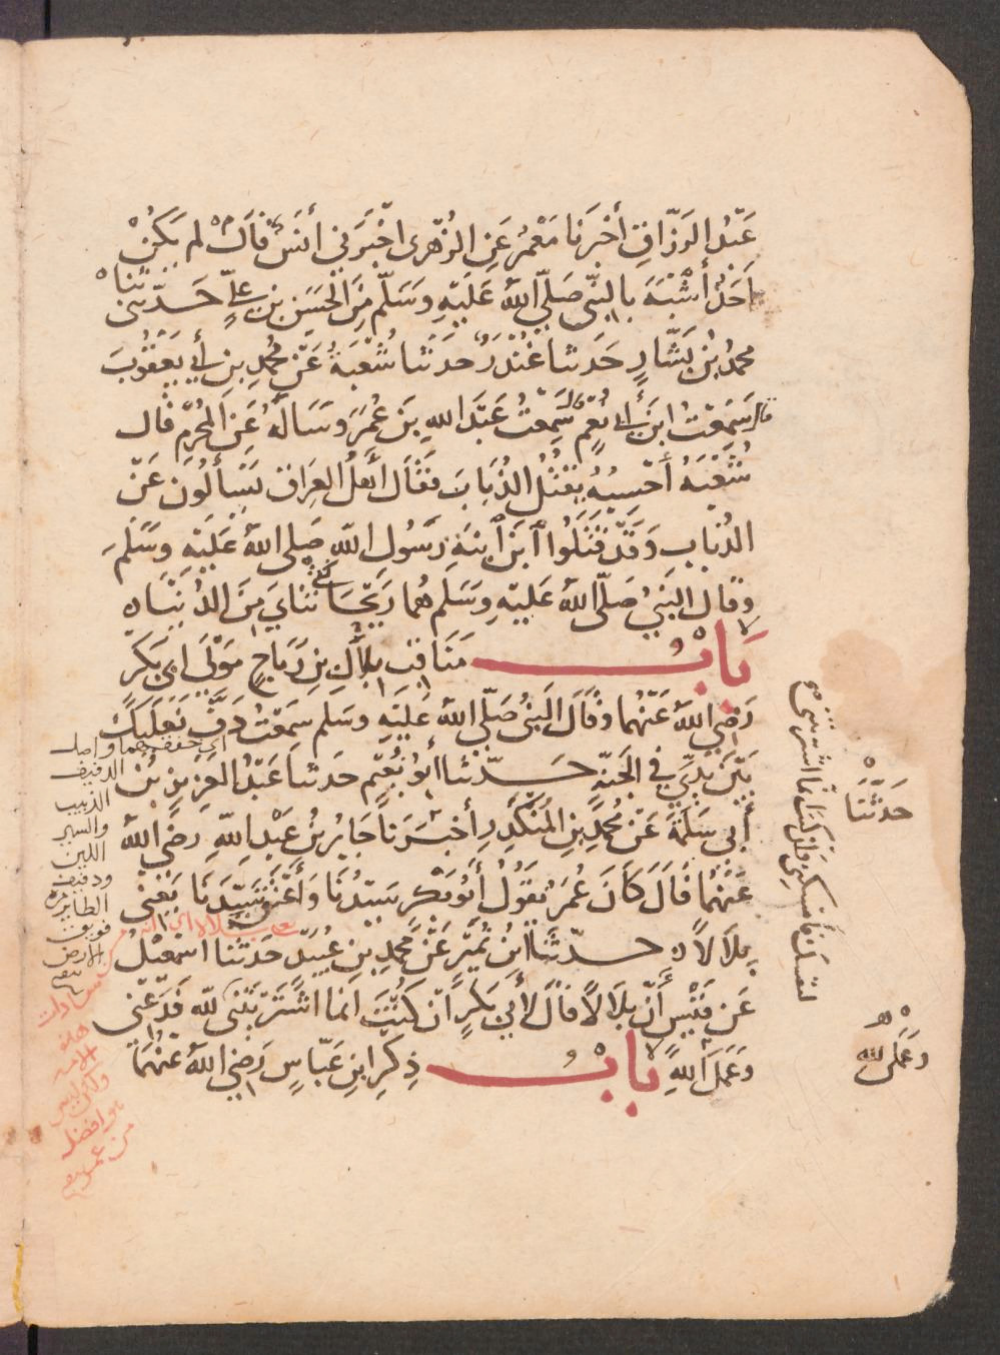 عَبْدُ الرَزّاقِ أَخْبَرَنَا مَعْمَرٌ عَنِ الزُهْرِى اخْبَرَنِى أَنَسٌ قَالَ لم يَكُنْ
اَحَدٌ أَشْبَهَ بالنَّبِىِّ صَلَّى اللهُ عَلَيْهِ وَسَلَّمَ مِنَ الحَسَنِ بنِ عَلِىٍّ حَدّثَنِى
محمدُ بْنُ بَشَّارٍ حَدَثنا غُنْدَرٌ حَدَثَنا شُعْبَةُ عَنْ مُحمدِ بنِ أَبِى يَعْقُوبَ
قال سَمِعْتُ ابْنَ أَبِى نُعْمٍ سَمِعْتُ عَبْدَ اللهِ بْنَ عُمَرَ وسَأَلَهُ عَنِ المُحْرِمِ قال
شُعْبَةُ أَحْسِبُهُ يَقْتُلُ الذُبَابَ فَقَالَ أَهْلُ العِرَاقِ يَسْألُونَ عَنْ
الذُبَابِ وَقَدْ قَتَلُوا ابْنَ ابْنَةِ رَسُولِ اللهِ صَلى اللهُ عَلَيْهِ وسَلَمَ
وقال النَبِىُّ صَلَّى اللهُ عَلَيْهِ وسَلَم هُمَا رَيْحَانَتَاىَ مِنَ الدُنْيَا
بَابُ مَنَاقِبِ بِلَالِ بنِ رَبَاحٍ مَوْلَى ابى بَكْرٍ
رَضِىَ اللهُ عَنْهُمَا وقَالَ النَبِىُّ صَلَّى اللهُ عَلَيْهِ وسَلم سَمِعْتُ دَفَّ نَعْلَيْكَ
بَيْنَ يَدَىَّ فى الجَنَّةِ حَدّثنا أَبُو نُعَيْمٍ حَدثنا عَبْدُ العَزِيزِ بْنُ
أَبِى سَلَمَةَ عَنْ مُحَمَّدِ بنِ المُنْكَدِرِ أَخْبَرَنَا جَابِرُ بْنُ عَبْدِ اللهِ رضَى اللهُ
عَنْهُمَا قَالَ كَانَ عُمَرُ يَقُولُ أَبُو بَكْرٍ سَيِّدُنَا وَأَعْتَقَ سَيِّدَنَا يَعْنِى
بِلَالًا حَدّثَنَا ابْنُ نُمَيْرٍ عَنْ مُحَمَّدِ بْنِ عُبَيْدٍ حَدَثنا اسْمَعِيلُ
عَنْ قَيْسٍ أَنَّ بِلَالًا قَالَ لأَبِى بَكْرٍ انْ كُنْتَ انَّمَا اشْتَرَيْتَنِى لله فَدَعْنِى
وَعَمَلَ اللهِ بَابُ ذِكْرِ ابنِ عَبَّاسٍ رَضِىَ اللهُ عَنْهُمَا
حَدَّثَنَا
وعَمَلِى لله
اى خفقهما واصل
الدفيف
اللين
ودفيف
الطائر
فويق
الارض
هذه
الامة
من عمر